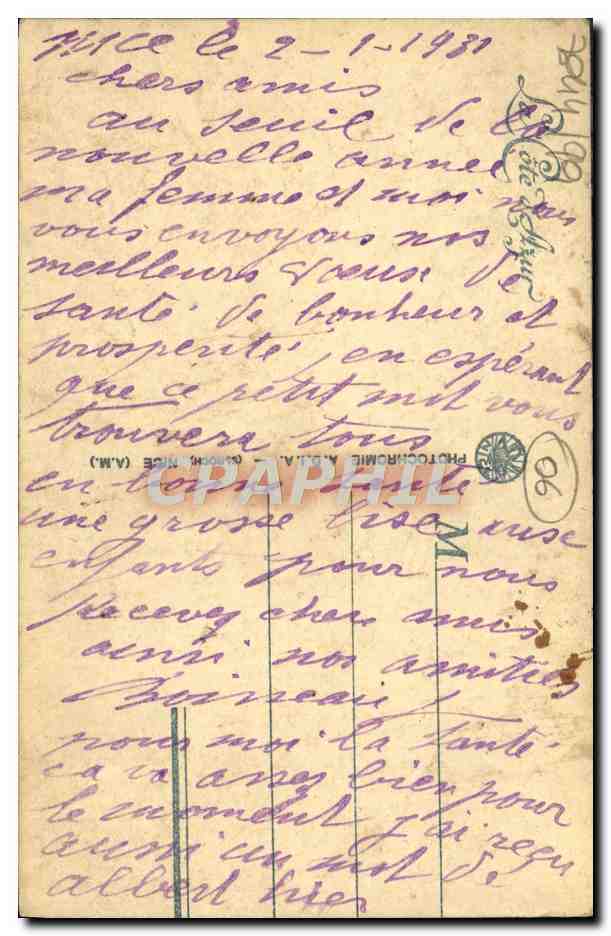 Nice le 2-1-1931
chers amis
au seuil de la
nouvelle année
ma femme et moi nous
vous envoyons nos
meilleurs voeux de
santé de bonheur et
prosperité, en espérant
que ce petit mot vous
trouvera tous
en bonne santé
une grosse bise aux
enfants pour nous
Recevez chers amis
ainsi nos amitiés
Boisseau
pour moi la santé
ca va assez bien pour
le moment j'ai reçu
aussi un mot de
albert hier
La Côte d'Azur
PHOTOCHROMIE A.D.I.A. - NICE (A.M.)
M
06
CPAPHIL